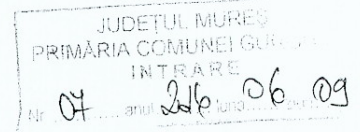 JUDEȚUL MUREȘ
PRIMĂRIA COMUNEI
INTRARE
Nr. 07 anul 2016 luna 06 09